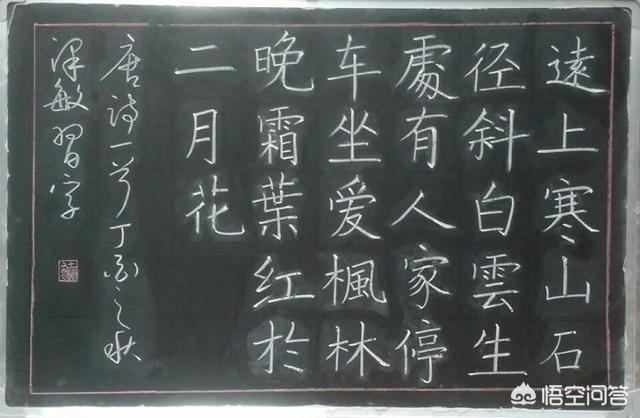 遠上寒山石
径斜白雲生
處有人家停
车坐爱楓林
晚霜葉红於
二月花
唐诗一首丁酉之秋
敏習字
悟空问答